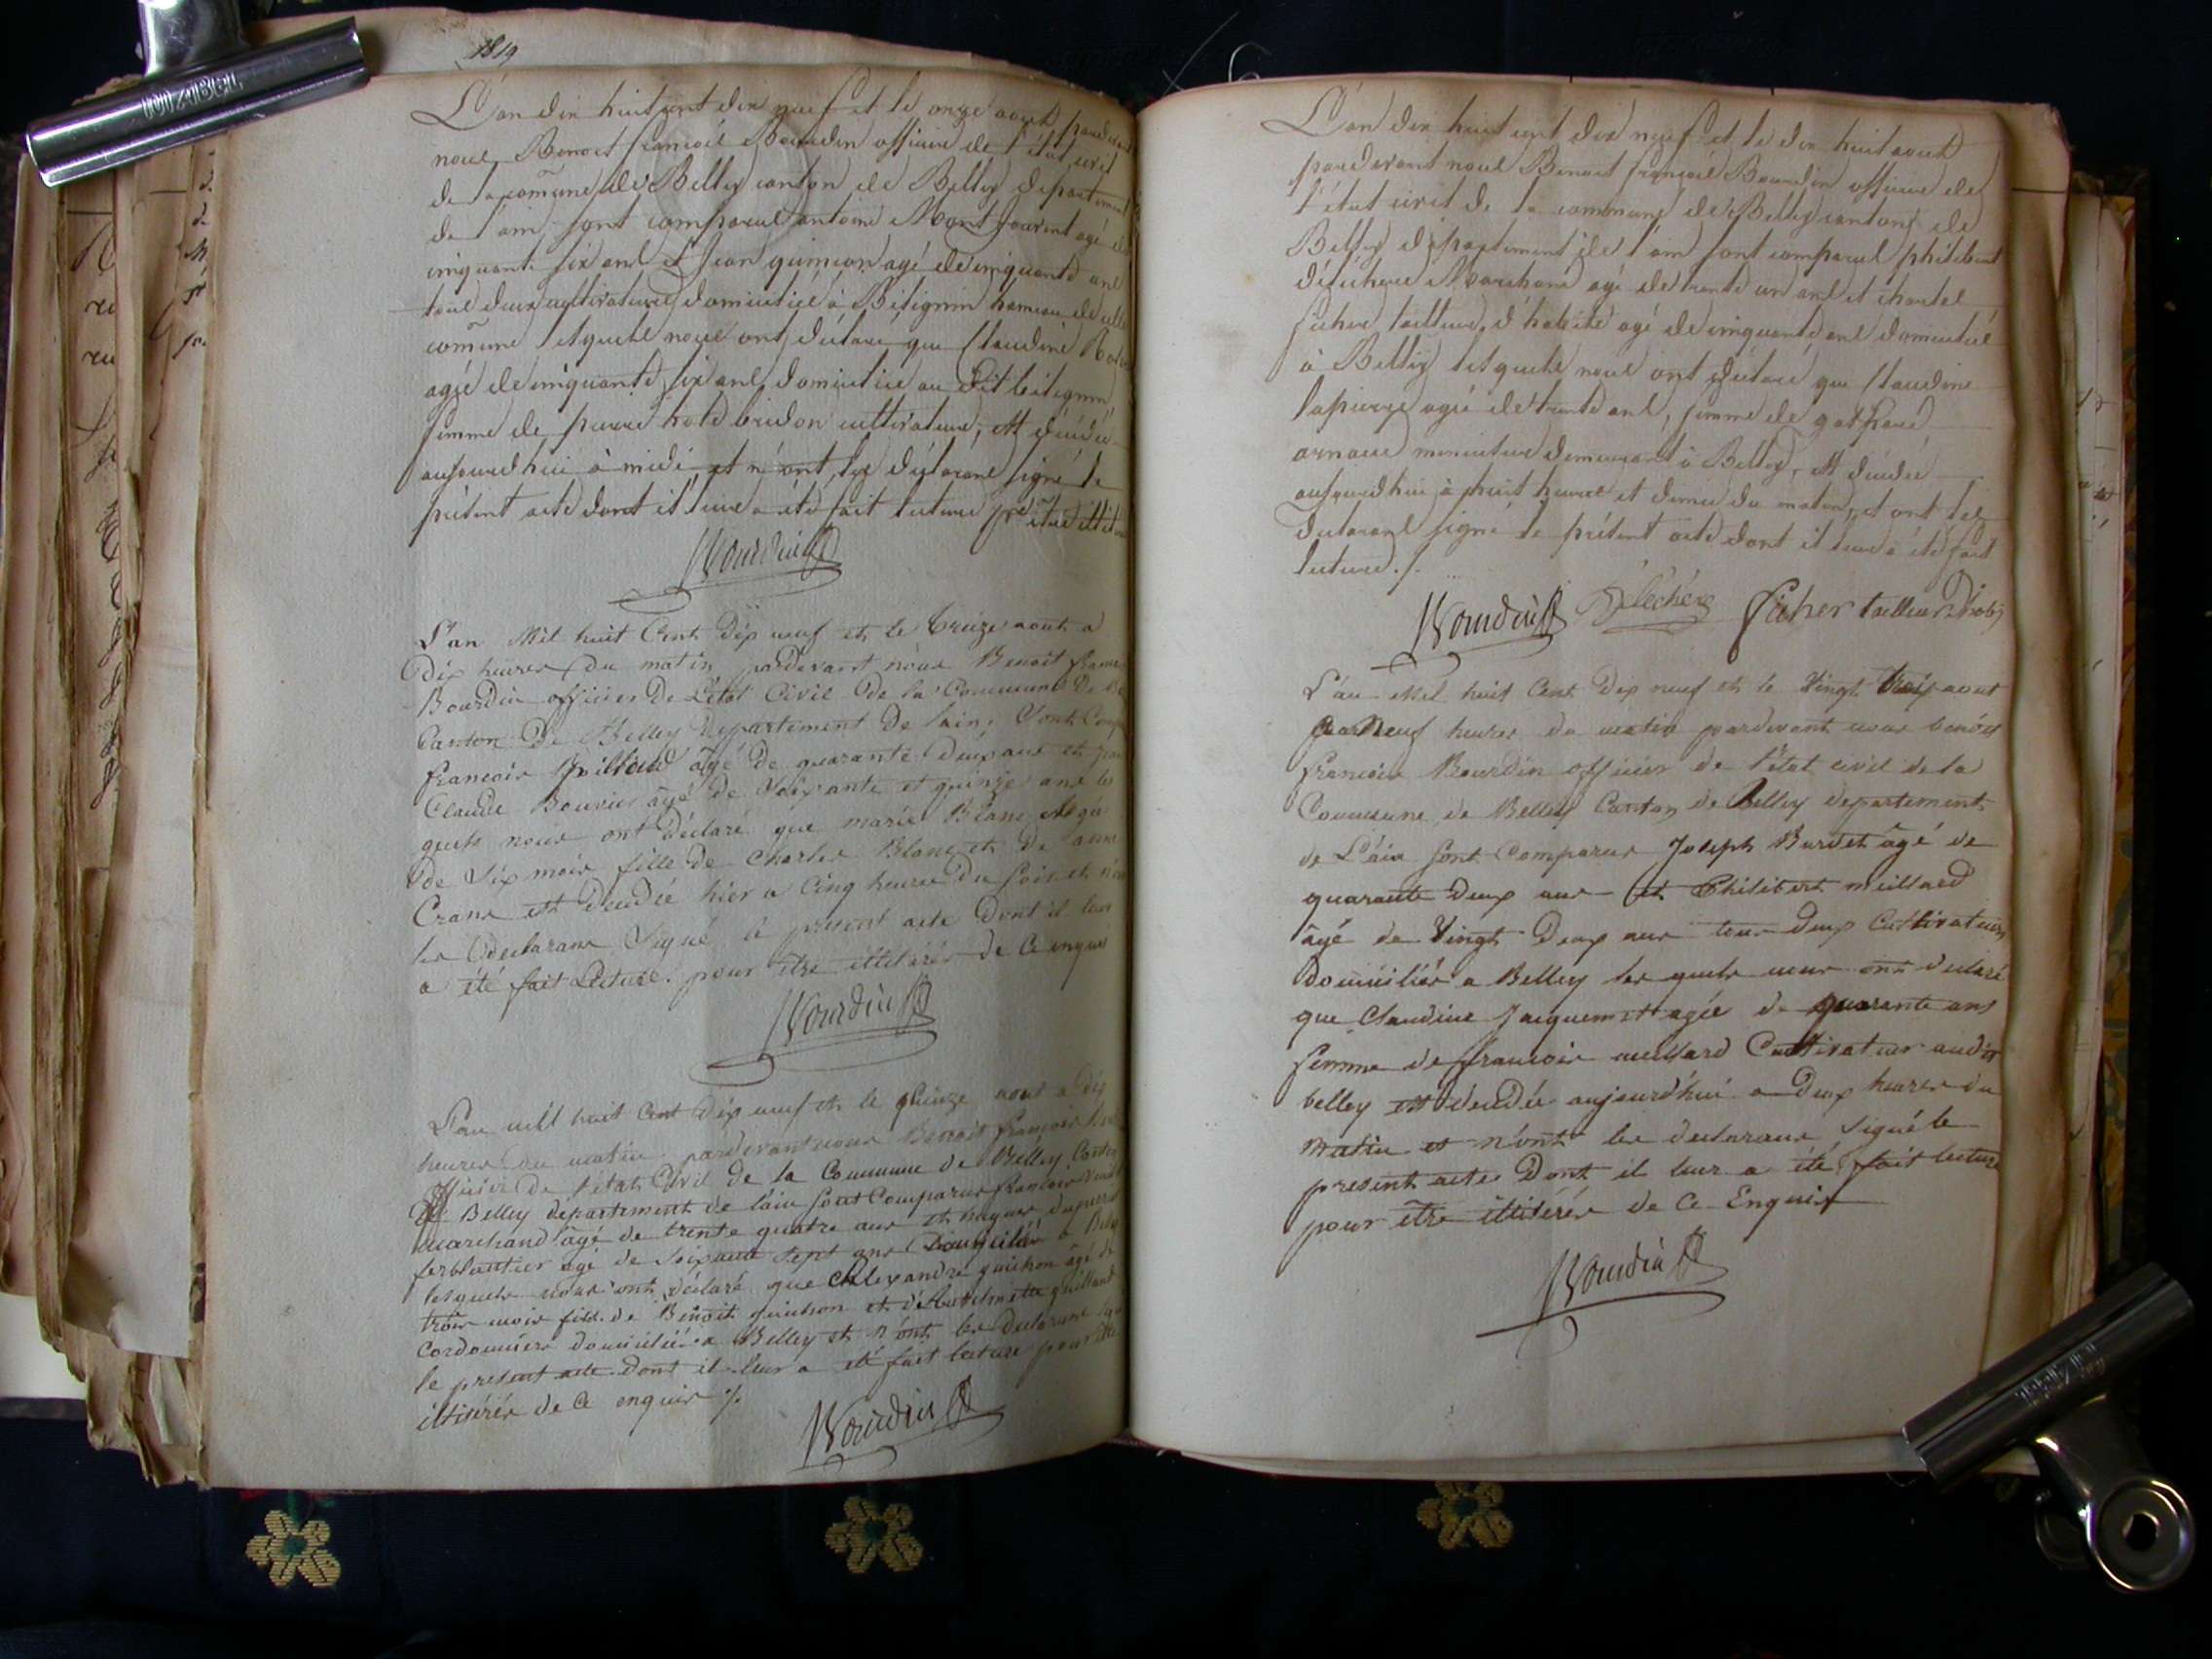 1819
L'an dix huit cent dix neuf et le onze aout pardevant
nous Benoit françois Bourdin officier de l'état civil
de la comune de Belley canton de Belley departement
de l'ain sont comparus antoine Montfourent agé de
cinquante six ans et Jean quinson agé de cinquante ans
tous deux cultivateurs domicilié à Bitignin hameau de cette
comune lesquels nous ont déclaré que Claudine
agée de cinquante six ans domicilié au dit bitignin
femme de pierre bridon cultivateur, est décédé
aujourd'hui à midi et n'ont les déclarans signé le
présent acte dont il leur a été fait lecture pr être
Bourdin
L'an Mil huit Cent Dix neuf et le treize aout a
Dix heures du matin pardevant nous Benoit
Bourdin officier De L'état Civil de la Commune De
Canton De Belley Departement De lain. Sont
francois âgé De quarante Deux ans et
Claude Bouvier âgé De Soixante et quinze ans les
quels nous ont Déclaré que marie Blanc Agée
De Six mois fille De Charles Blanc et De anne
Crane est Décédé hier a Cinq heures Du soir et
les Déclarans Signé le présent acte Dont il leur
a été fait Lecture pour être illitérés de Ce enquis
Bourdin
L'an mil huit Cent Dix neuf et le quinze aout a dix
heures Du matin pardevant nous Benoit françois
officier De l'état Civil De la Commune De Belley Canton
De Belley departement de lain sont Comparus francois
marchand âgé de trente quatre ans et
ferblantier agé de soixante sept ans Domiciliés a Belley
lesquels nous ont déclaré que Alexandre guichon âgé de
trois mois fils de Benoit guichon et d'Anthelmette
Cordonniers domiciliés a Belley et n'ont les declarans
le present acte Dont il leur a été fait lecture pour
illitérés de Ce enquis ./.
Bourdin
L'an dix huit cent dix neuf et le dix huit aout
pardevant nous Benoit françois Bourdin officier de
l'état civil de la commune de Belley canton de
Belley département de l'ain sont comparus philibert
déléchère Marchand agé de trente un ans et charles
ficher tailleur d'habits agé de cinquante ans domicilié
à Belley lesquels nous ont déclaré que Claudine
lapierre agée de trente ans, femme de gaspard
arnaud demeurant à Belley, est décédé
aujourd'hui à huit heures et demie du matin, et ont les
declarans signé le présent acte dont il leur a été fait
lecture ./.
Bourdin Déléchère ficher tailleur D'habis
L'an Mil huit Cent Dix neuf et le Vingt trois aout
a Neuf heures du matin pardevant nous benoit
francois Bourdin officier de l'état civil de la
Commune de Belley Canton de Belley departement
de L'ain sont Comparus Joseph Burdet âgé de
quarante Deux ans et Philibert millard
âgé de Vingt Deux ans tous Deux Cultivateurs
Domiciliés a Belley les quels nous ont declaré
que Claudine Jacquemet agée de quarante ans
femme de francois millard Cultivateur audit
belley est décédée aujourd'hui a Deux heures du
matin et n'ont les declarans Signé le
present acte Dont il leur a été fait lecture
pour être illitérés de Ce Enquis
Bourdin